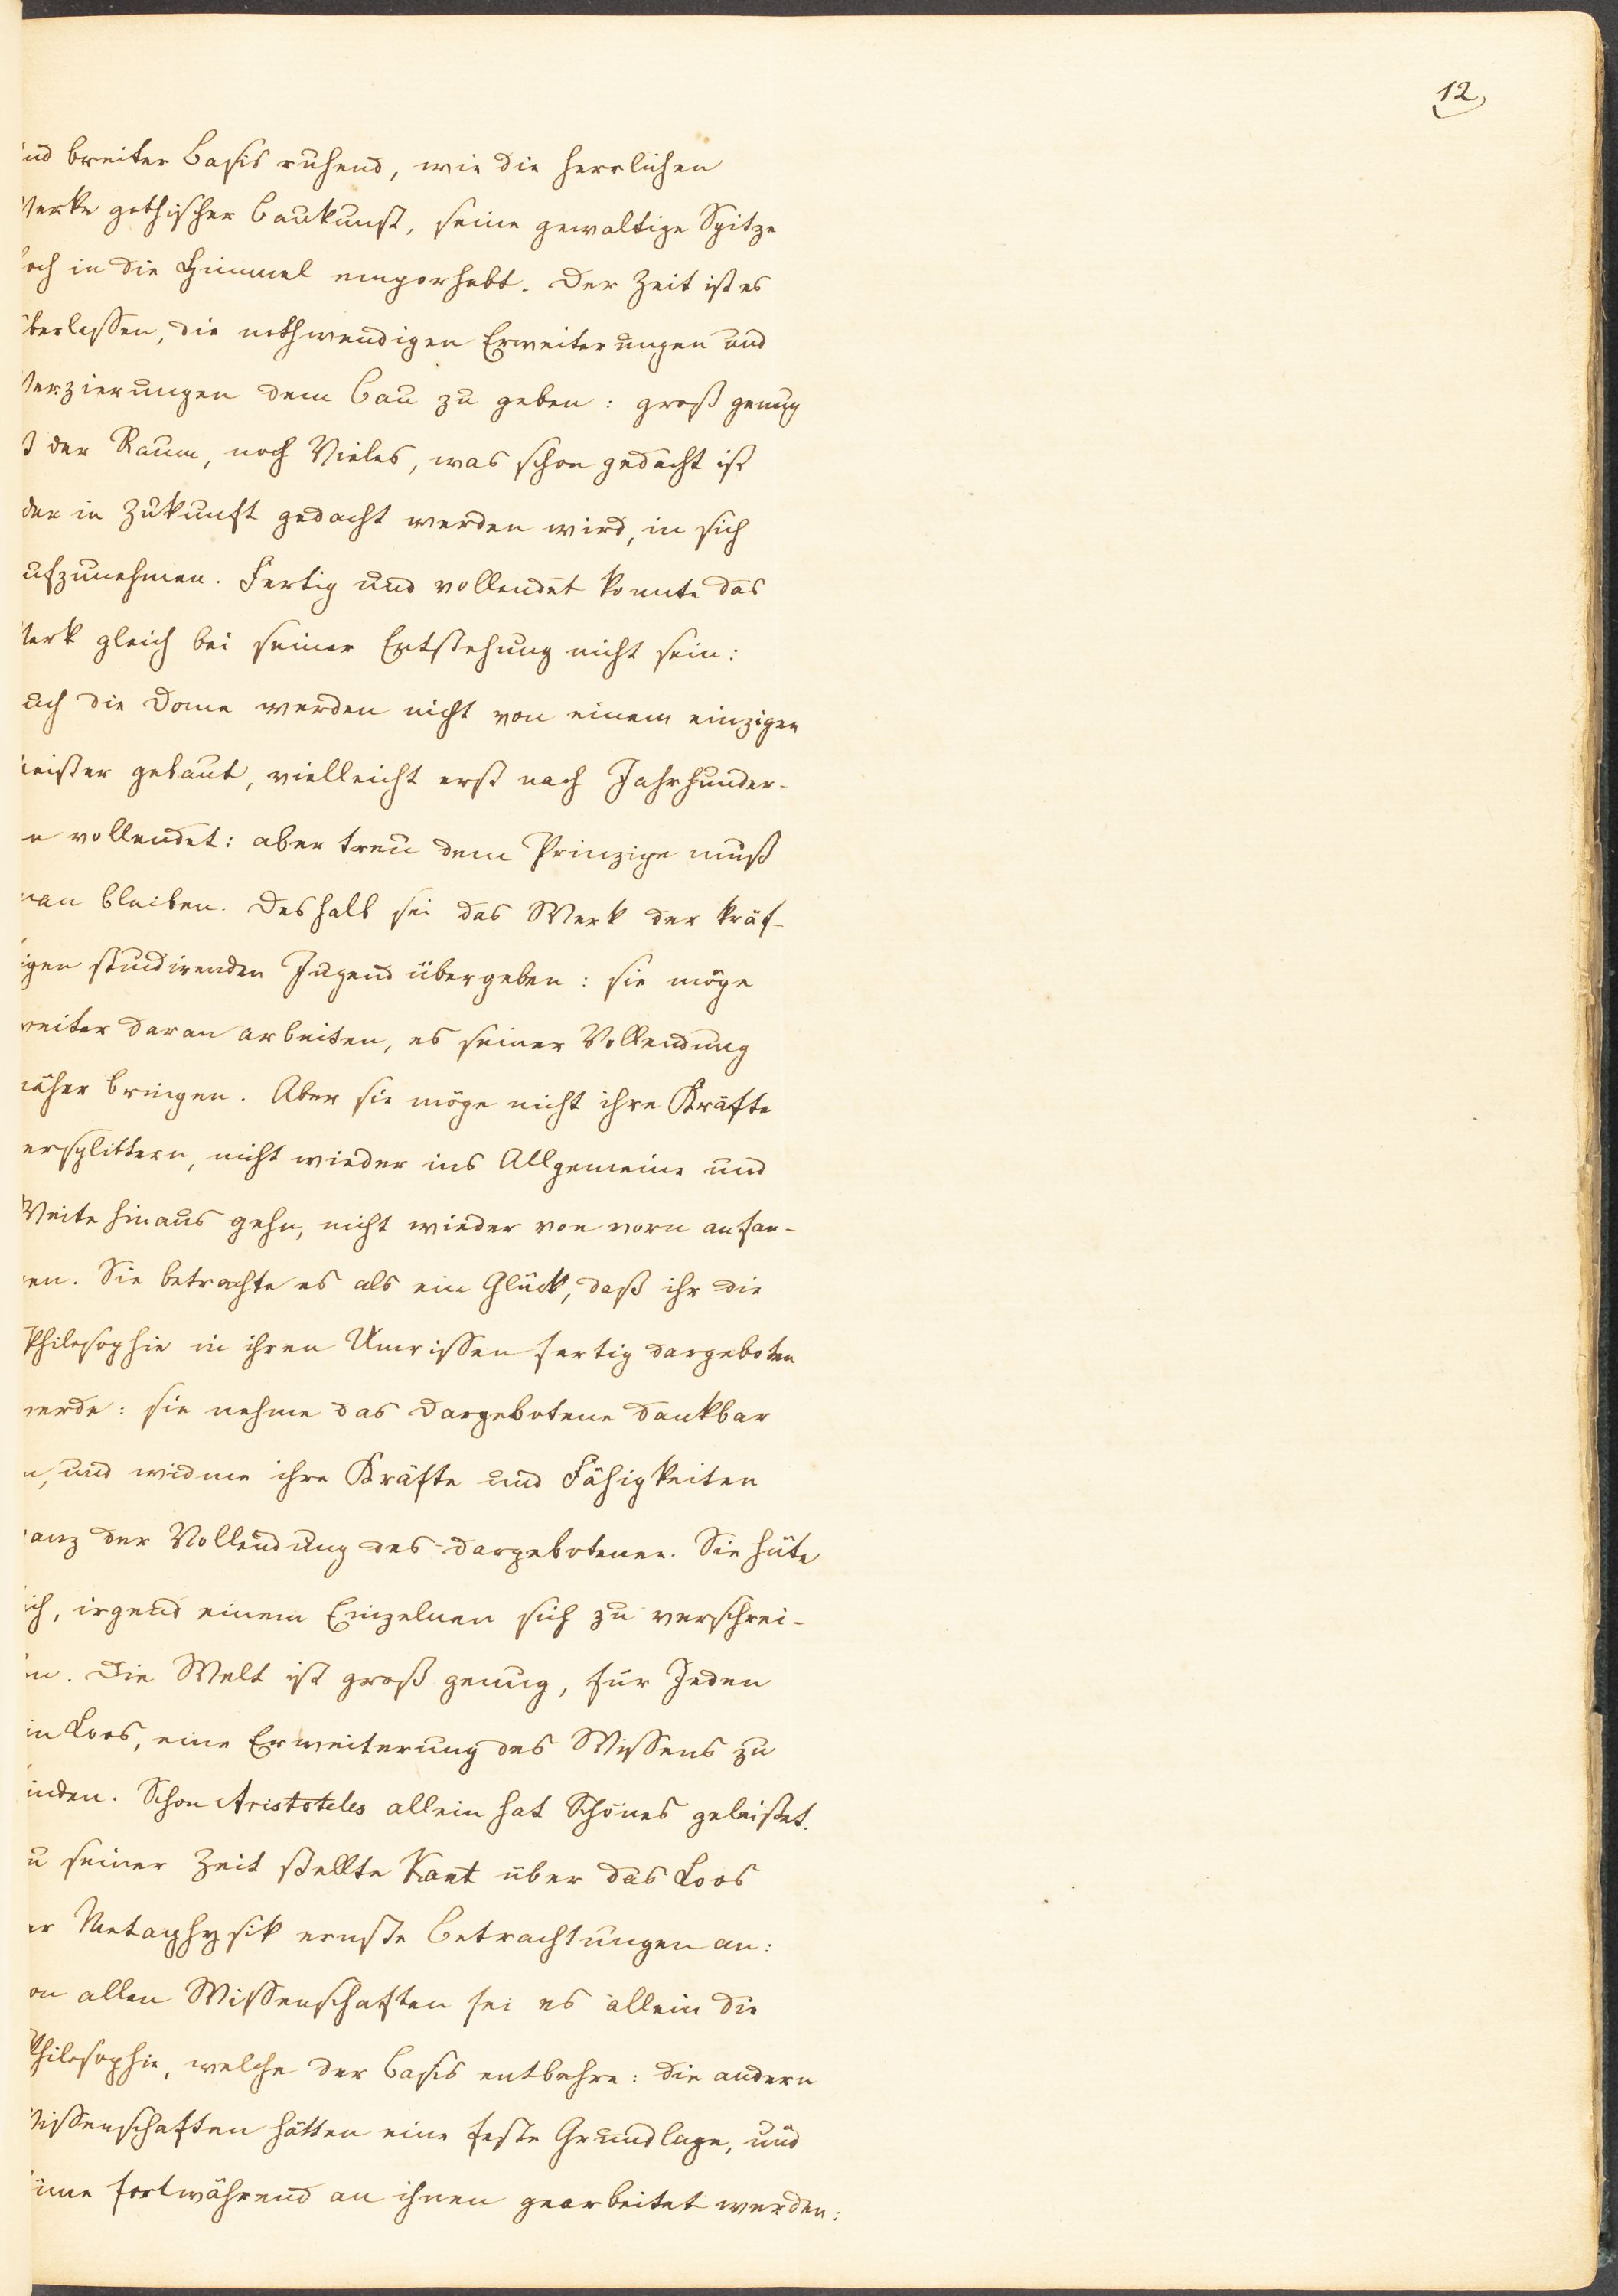 12
und breiter Basis ruhend, wie die herrlichen
Werke gothischer Baukunst, seine gewaltige Spitze
hoch in die Himmel emporhebt. Der Zeit ist es
überlassen, die nothwendigen Erweiterungen und
Verzierungen dem Bau zu geben: groß genug
ist der Raum, noch Vieles, was schon gedacht ist
oder in Zukunft gedacht werden wird, in sich
aufzunehmen. Fertig und vollendet konnte das
Werk gleich bei seiner Entstehung nicht sein:
auch die Dome werden nicht von einem einzigen
Meister gebaut, vielleicht erst nach Jahrhunder-
ten vollendet: aber treu dem Prinzipe muß
man bleiben. Deshalb sei das Werk der kräf-
tigen studirenden Jugend übergeben: sie möge
weiter daran arbeiten, es seiner Vollendung
näher bringen. Aber sie möge nicht ihre Kräfte
zersplittern, nicht wieder ins Allgemeine und
Weite hinaus gehn, nicht wieder von vorn anfan-
gen. Sie betrachte es als ein Glück, daß ihr die
Philosophie in ihren Umrissen fertig dargeboten
werde: sie nehme das Dargebotene dankbar
an, und widme ihre Kräfte und Fähigkeiten
ganz der Vollendung des Dargebotenen. Sie hüte
sich, irgend einem Einzelnen sich zu verschrei-
ben. Die Welt ist groß genug, für Jeden
ein Loos, eine Erweiterung des Wissens zu
finden. Schon Aristoteles allein hat Schönes geleistet.
Zu seiner Zeit stellte Kant über das Loos
der Metaphysik ernste Betrachtungen an:
von allen Wissenschaften sei es allein die
Philosophie, welche der Basis entbehre: die andern
Wissenschaften hätten eine feste Grundlage, und
könne fortwährend an ihnen gearbeitet werden: